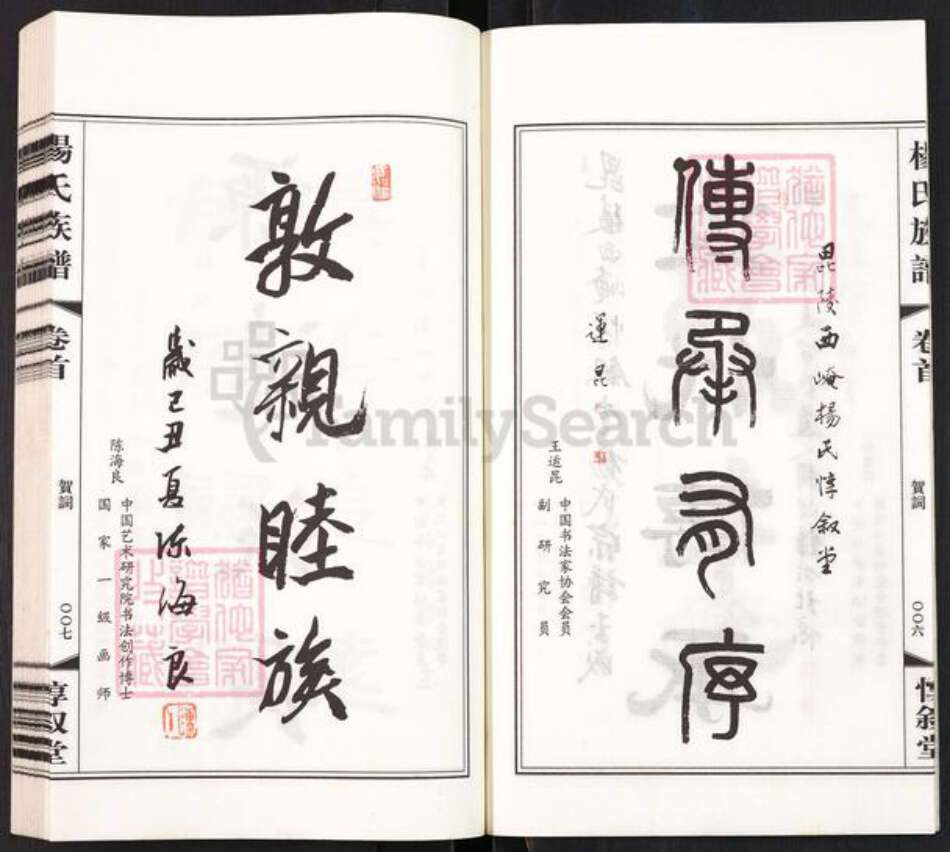 楊氏族譜
卷首
賀詞
〇〇六
惇叙堂
毘陵西崦楊氏惇叙堂
傳承有序
運昆
王运昆
中国书法家协会会员
副研究员
敦親睦族
歲己丑夏陈海良
陈海良
中国艺术研究院书法创作博士
国家一级画师
楊氏族譜
卷首
賀詞
〇〇七
惇叙堂
FamilySearch